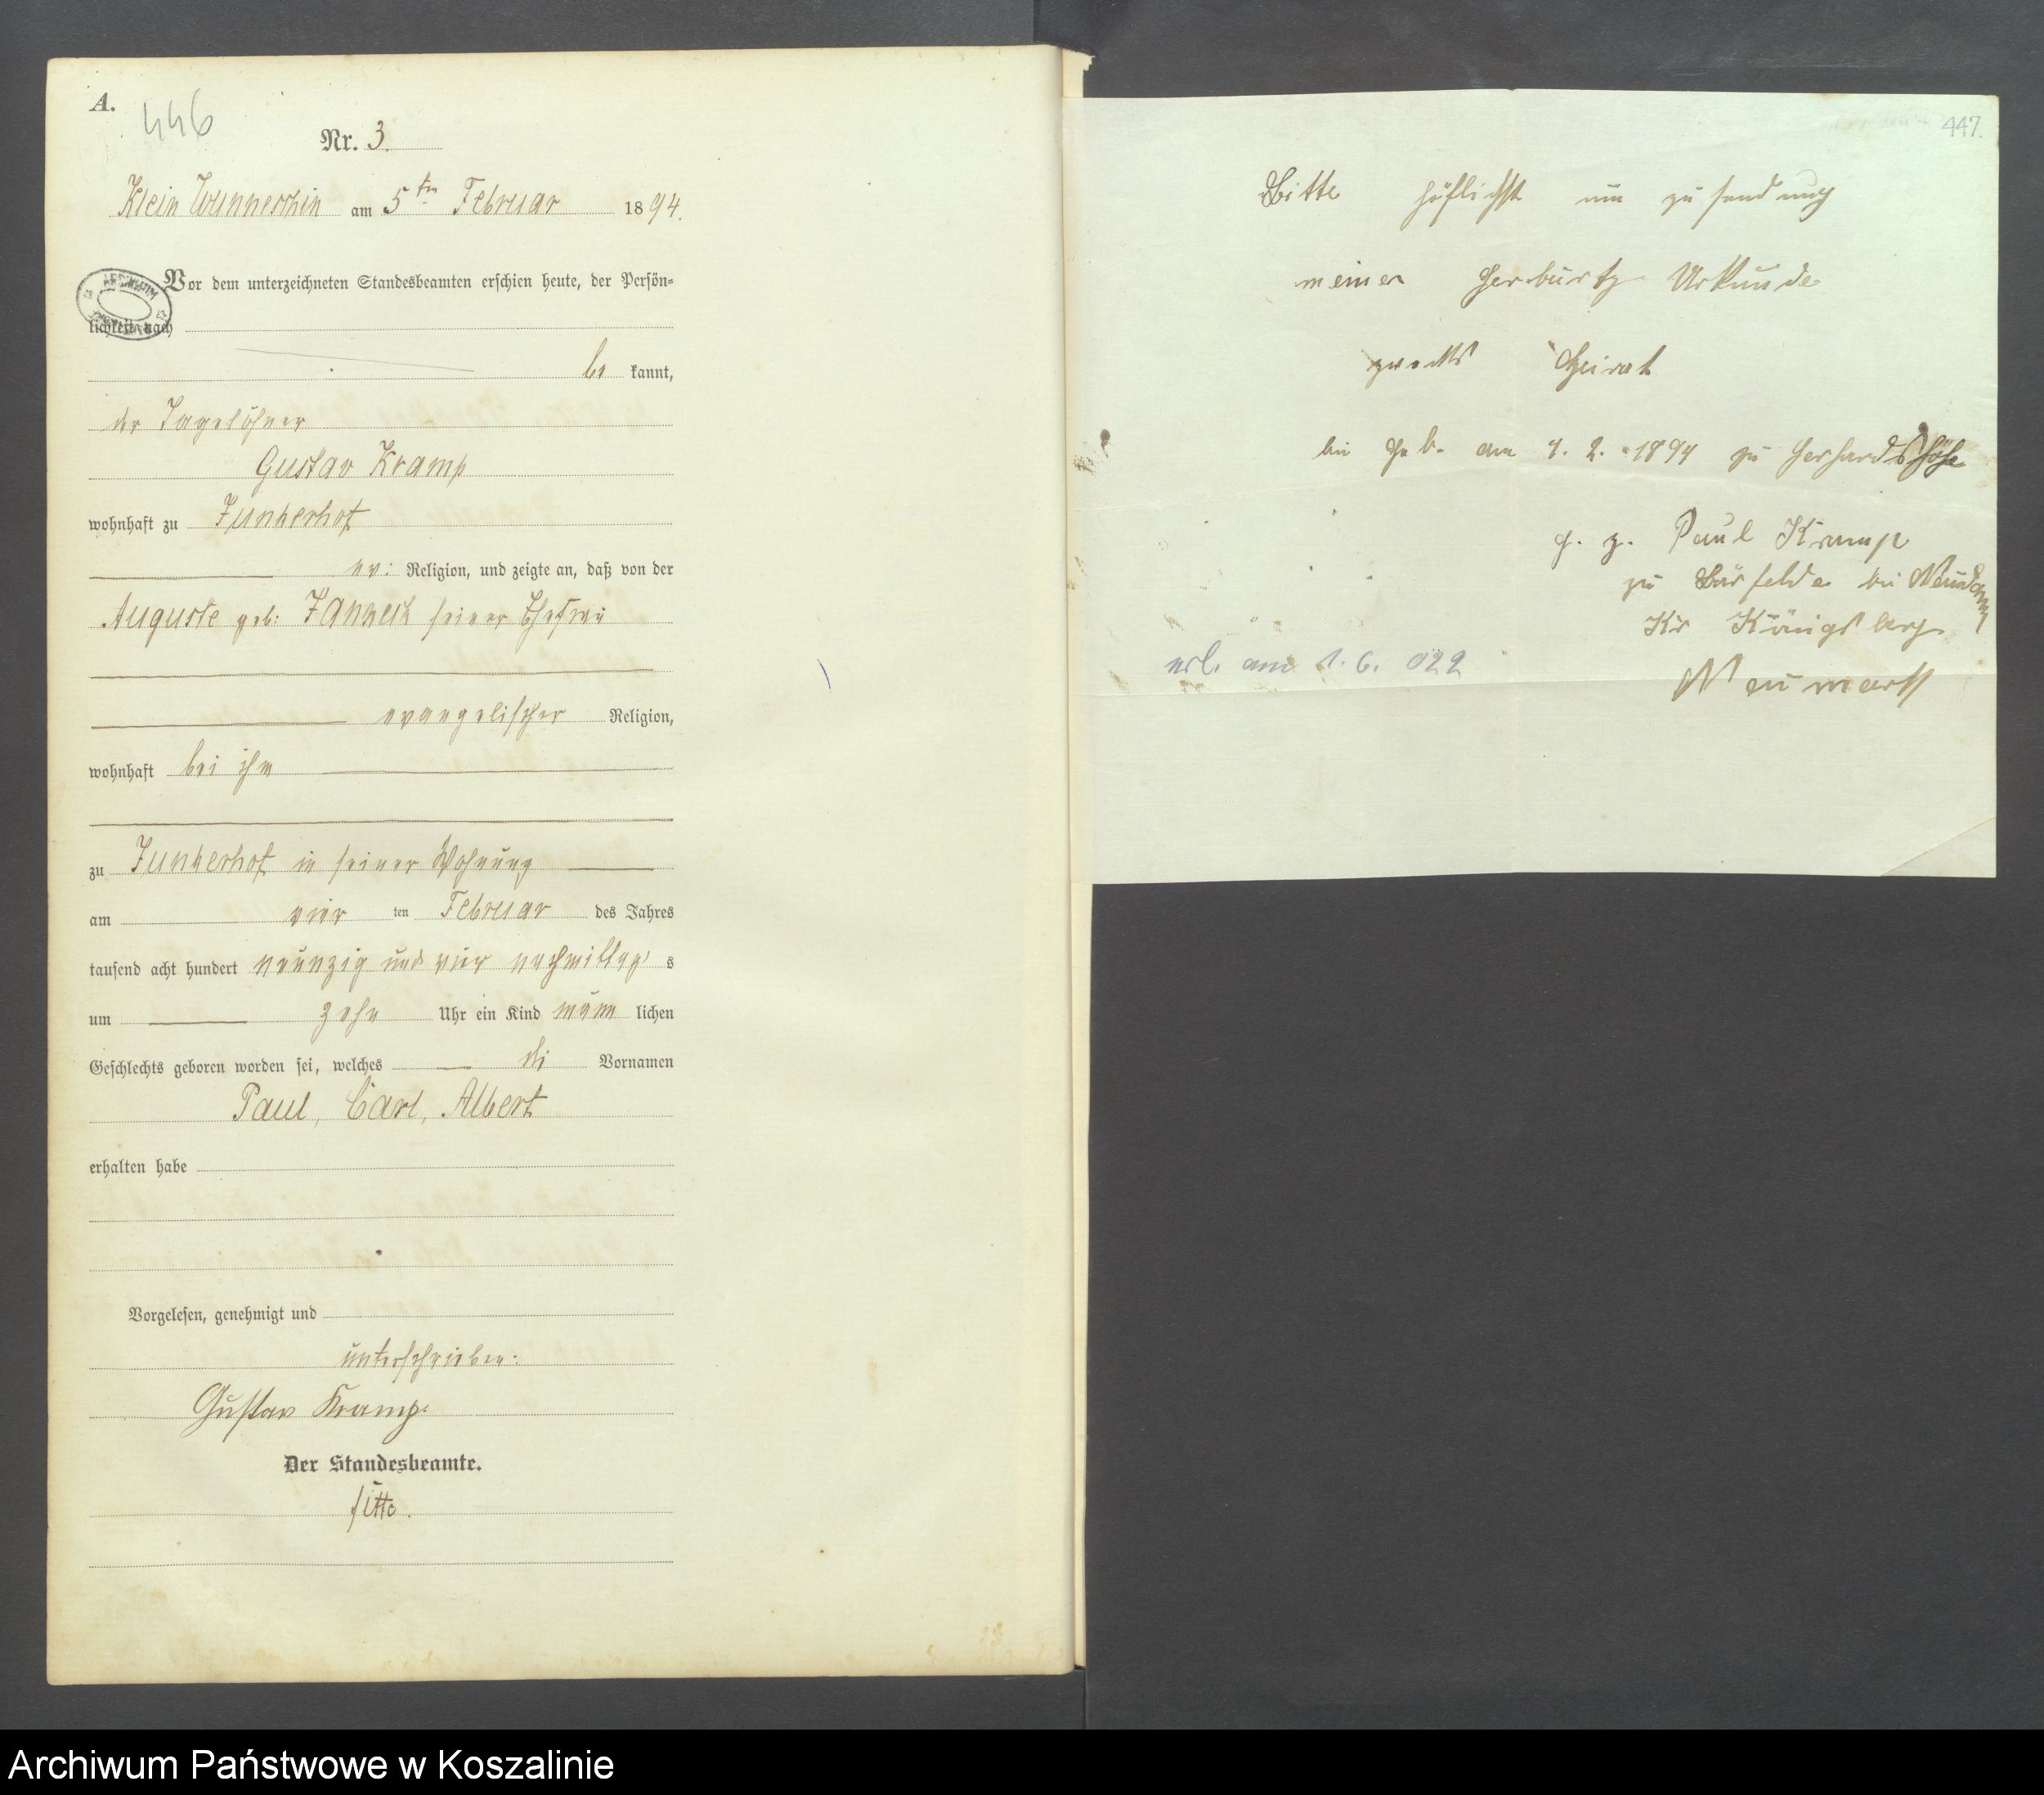 A.
446
Nr. 3.
Klein Wunneschin am 5ten Februar 1894.
Vor dem unterzeichneten Standesbeamten erschien heute, der Persön-
lichkeit nach
be kannt,
der Tagelöhner
Gustav Kramp
wohnhaft zu Junkerhof
ev: Religion, und zeigte an, daß von der
Auguste geb: Janneck seiner Ehefrau
evangelischer Religion,
wohnhaft bei ihm
zu Junkerhof in seiner Wohnung
am vier ten Februar des Jahres
tausend acht hundert neunzig und vier nachmittags
um zehn Uhr ein Kind männ lichen
Geschlechts geboren worden sei, welches die Vornamen
Paul, Carl, Albert
erhalten habe
Vorgelesen, genehmigt und
unterschrieben:
Gustav Kramp.
Der Standesbeamte.
447.
Bitte höflichst um zusendung
meiner Gerburtz Urkunde
zwecks Heirat
bin geb. am 4. 2. 1894 zu Gerhardshöhe
g. z. Paul Kramp
zu Bärfelde bei Neudamm
Kr Königsberg
Neumark
erl. am 1. 6. 022
Archiwum Państwowe w Koszalinie